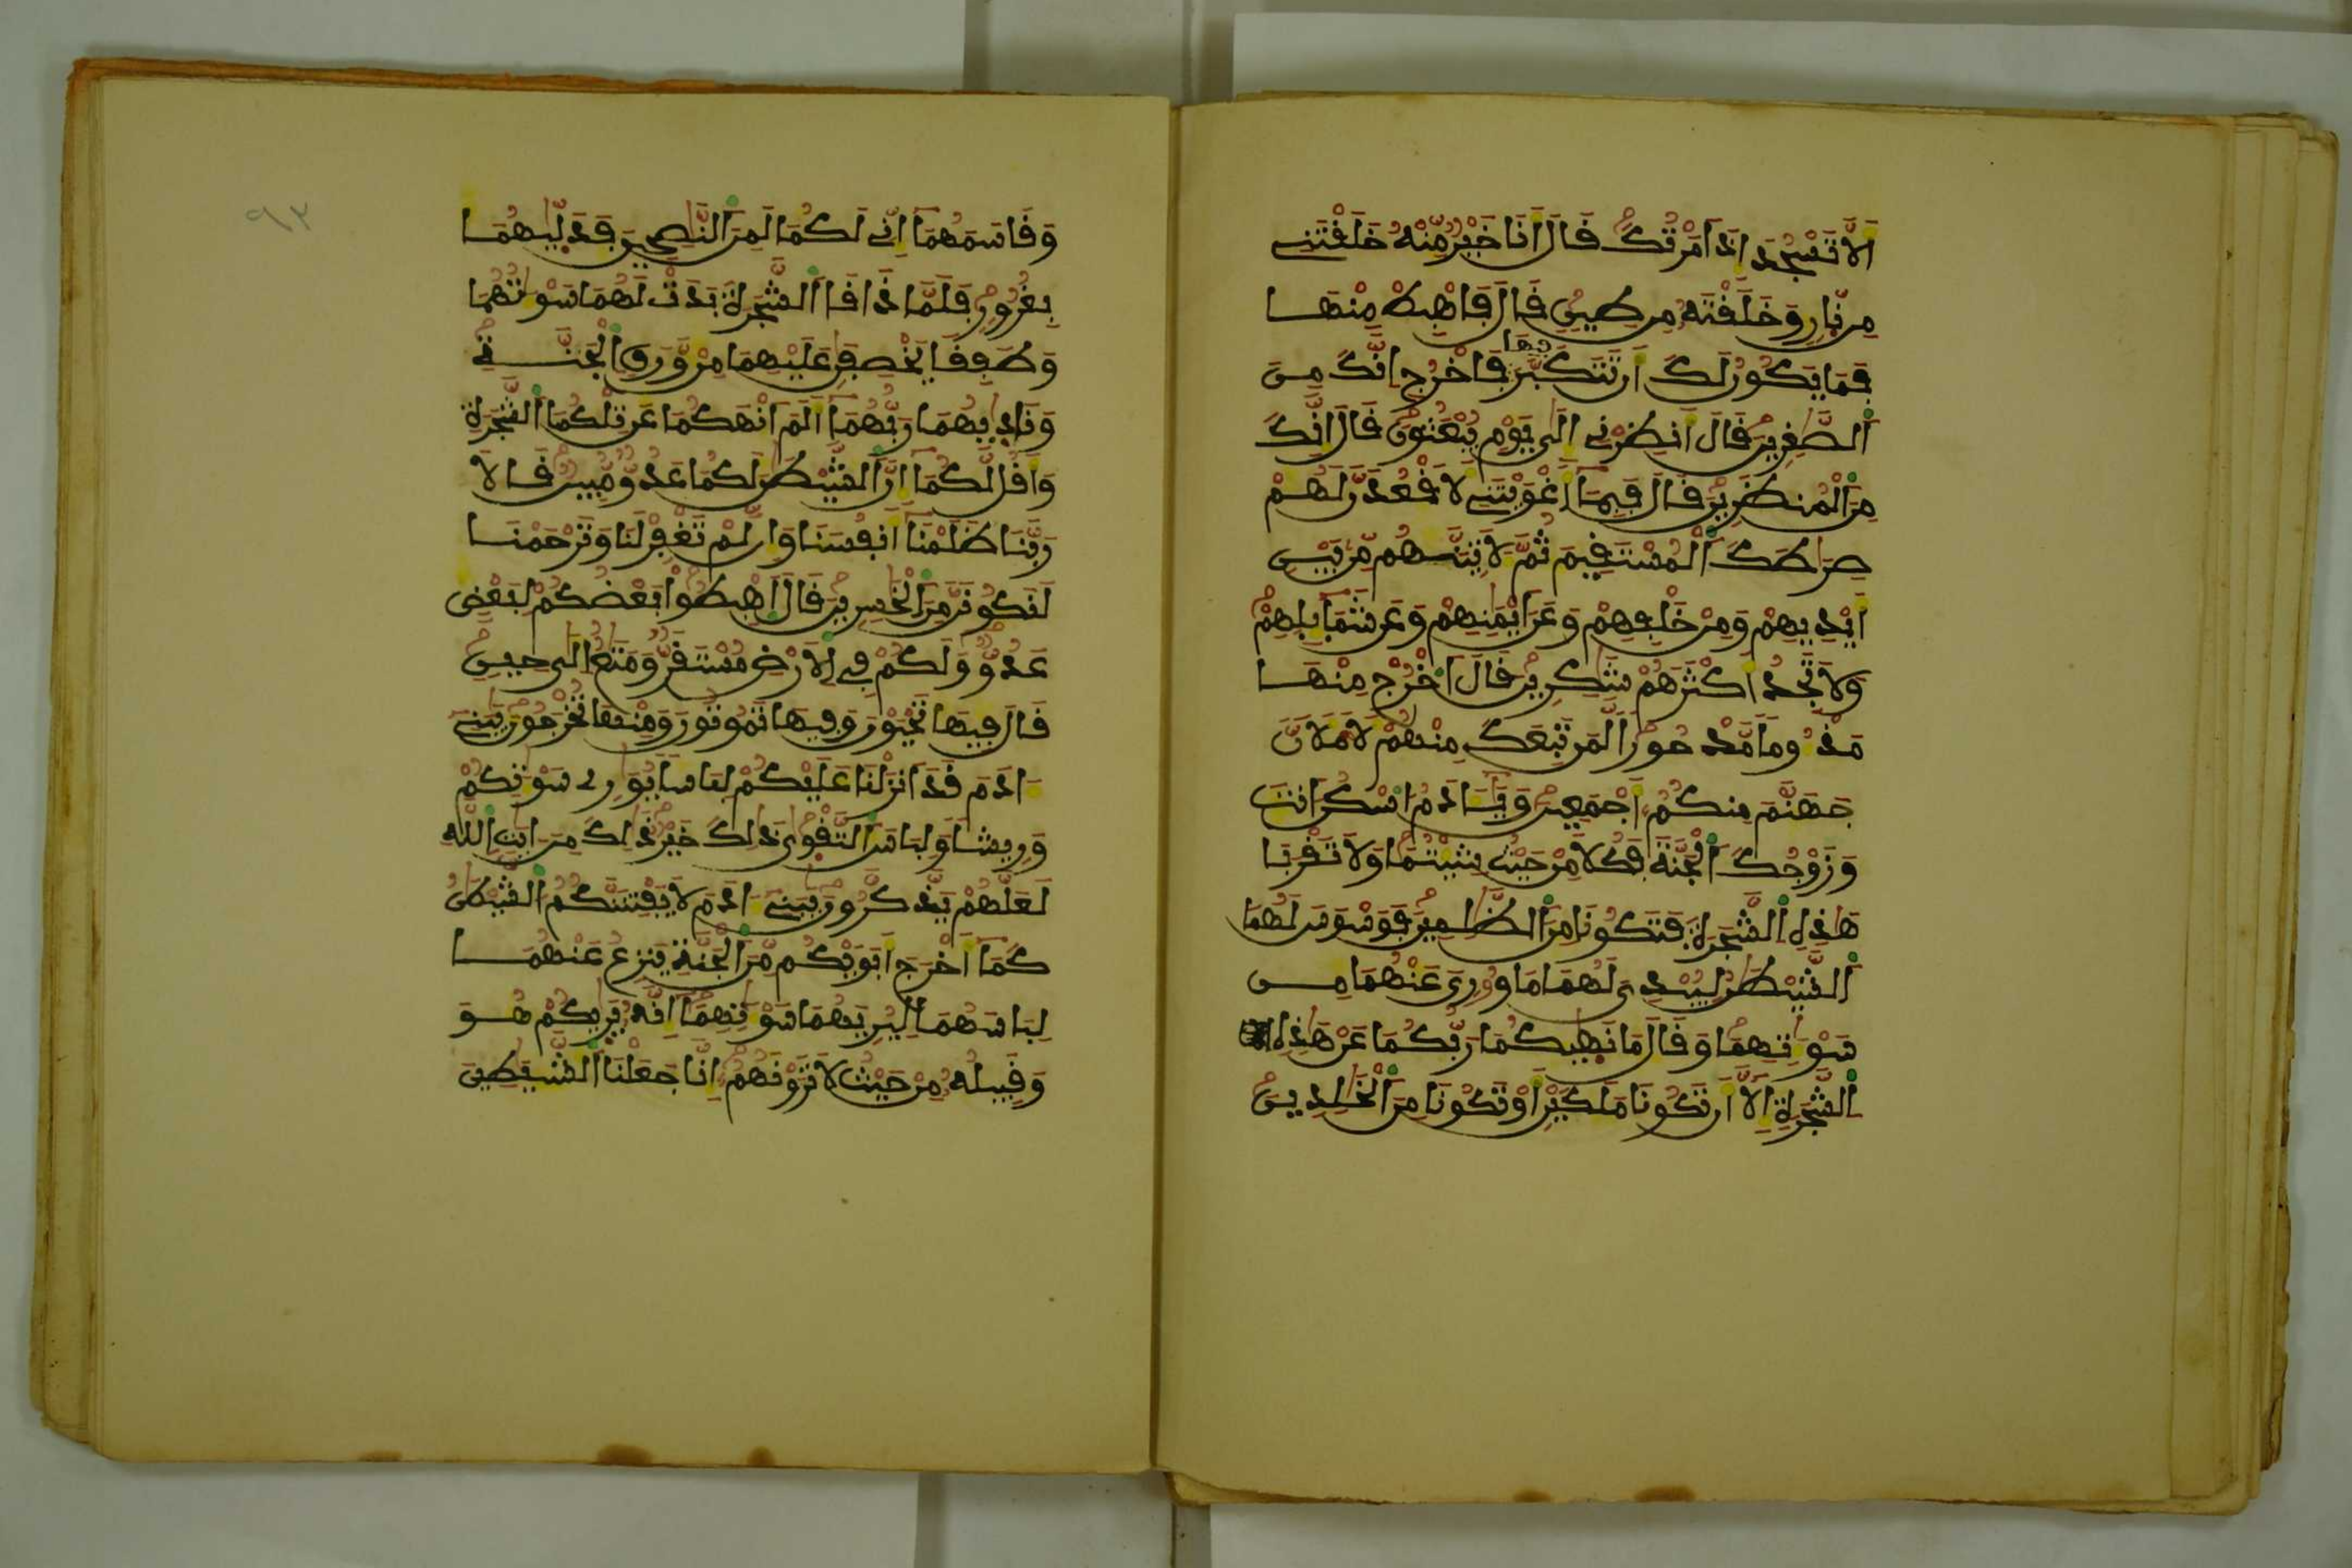 أَلَّا تَسْجُدَ إِذَ امَرْتُكَ قَالَ أَنَا خَيْرٌ مِّنْهُ خَلَقْتَنِے
مِن نّارٖ وَخَلَقْتَهُۥ مِن طِينٖ قَالَ فَاهْبِطْ مِنْهَا
فَمَا يَكُونُ لَكَ أَن تَتَكَبَّرَ فِيهَا فَاخْرُجِ انَّكَ مِنَ
اَلصَّٰغِرِينَ قَالَ أَنظِرْنِے إِلَىٰ يَوْمِ يُبْعَثُونَ قَالَ إِنَّكَ
مِنَ اَلْمُنظَرِينَ قَالَ فَبِمَا أَغْوَيْتَنِے لَأَقْعُدَنَّ لَهُمْ
صِرَٰطَكَ اَلْمُسْتَقِيمَ ثُمَّ لَأتِيَنَّهُم مِّنۢ بَيْنِ
أَيْدِيهِمْ وَمِنْ خَلْفِهِمْ وَعَنَ ايْمَٰنِهِمْ وَعَن شَمَآئِلِهِمْ
وَلَا تَجِدُ أَكْثَرَهُمْ شَٰكِرِينَ قَالَ اَخْرُجْ مِنْهَا
مَذْءُوماً مَّدْحُوراً لَّمَن تَبِعَكَ مِنْهُمْ لَأَمْلَأَنَّ
جَهَنَّمَ مِنكُمُۥ أَجْمَعِينَ وَيَٰٓـَٔادَمُ اسْكُنَ انتَ
وَزَوْجُكَ اَلْجَنَّةَ فَكُلَا مِنْ حَيْثُ شِئْتُمَا وَلَا تَقْرَبَا
هَٰذِهِ اِلشَّجَرَةَ فَتَكُونَا مِنَ اَلظَّٰلِمِينَ فَوَسْوَسَ لَهُمَا
اَلشَّيْطَٰنُ لِيُبْدِىَ لَهُمَا مَا وُۥرِىَ عَنْهُمَا مِن
سَوْءَٰتِهِمَا وَقَالَ مَا نَهَىٰكُمَا رَبُّكُمَا عَنْ هَٰذِهِ
اِلشَّجَرَةِ إِلَّا أَن تَكُونَا مَلَكَيْنِ أَوْ تَكُونَا مِنَ اَلْخَٰلِدِينَ
وَقَاسَمَهُمَا إِنِّے لَكُمَا لَمِنَ اَلنَّٰصِحِينَ فَدَلَّىٰهُمَا
بِغُرُورٖ فَلَمَّا ذَاقَا اَلشَّجَرَةَ بَدَتْ لَهُمَا سَوْءَٰتُهُمَا
وَطَفِقَا يَخْصِفَٰنِ عَلَيْهِمَا مِنْ وَّرَقِ اِلْجَنَّةِ
وَنَادَىٰهُمَا رَبُّهُمَا أَلَمَ انْهَكُمَا عَن تِلْكُمَا اَلشَّجَرَةِ
وَأَقُل لَّكُمَا إِنَّ اَلشَّيْطَٰنَ لَكُمَا عَدُوٌّ مُّبِينٌ قَالَا
رَبَّنَا ظَلَمْنَا أَنفُسَنَا وَإِن لَّمْ تَغْفِرْ لَنَا وَتَرْحَمْنَا
لَنَكُونَنَّ مِنَ اَلْخَٰسِرِينَ قَالَ اَهْبِطُواْ بَعْضُكُمْ لِبَعْضٍ
عَدُوٌّ وَلَكُمْ فِے اِلَارْضِ مُسْتَقَرٌّ وَمَتَٰعٌ إِلَىٰ حِينٖ
قَالَ فِيهَا تَحْيَوْنَ وَفِيهَا تَمُوتُونَ وَمِنْهَا تُخْرَجُونَ يَٰبَنِے
ءَادَمَ قَدَ انزَلْنَا عَلَيْكُمْ لِبَاساً يُوَٰرِے سَوْءَٰتِكُمْ
وَرِيشاً وَلِبَاسَ اَلتَّقْوَىٰ ذَٰلِكَ خَيْرٌ ذَٰلِكَ مِنَ ايَٰتِ اِللَّهِ
لَعَلَّهُمْ يَذَّكَّرُونَ يَٰبَنِے ءَادَمَ لَا يَفْتِنَنَّكُمُ اُلشَّيْطَٰنُ
كَمَا أَخْرَجَ أَبَوَيْكُم مِّنَ اَلْجَنَّةِ يَنزِعُ عَنْهُمَا
لِبَاسَهُمَا لِيُرِيَهُمَا سَوْءَٰتِهِمَا إِنَّهُۥ يَرَىٰكُمْ هُوَ
وَقَبِيلُهُۥ مِنْ حَيْثُ لَا تَرَوْنَهُمُۥ إِنَّا جَعَلْنَا اَلشَّيَٰطِينَ